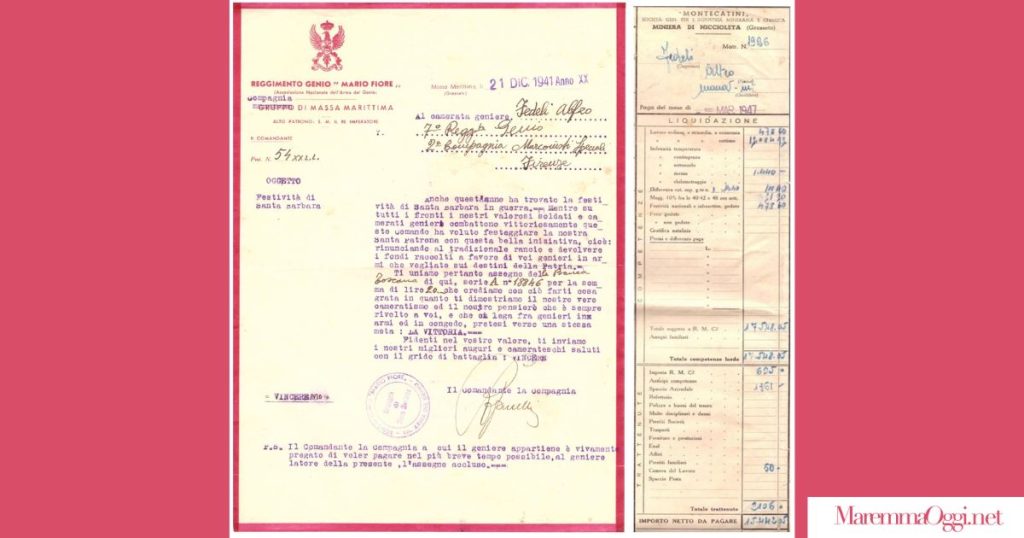 REGGIMENTO GENIO " MARIO FIORE "
(Associazione Nazionale dell'Arma del Genio)
Compagnia
GRUPPO DI MASSA MARITTIMA
ALTO PATRONO: S. M. IL RE IMPERATORE
IL COMANDANTE
Prot. N. 54 XX
Massa Marittima, li 21 DIC. 1941 Anno XX
(Grosseto)
Al camerata geniere Fedeli Alfeo
7° Regg. Genio
2ª Compagnia Marconisti Speciali
Firenze
OGGETTO
Festività di
Santa Barbara
Anche quest'anno ha trovato la festi-
vità di Santa Barbara in guerra.-- Mentre su
tutti i fronti i nostri valorosi soldati e ca-
merati genieri combattono vittoriosamente que-
sto Comando ha voluto festeggiare la nostra
Santa Patrona con questa bella iniziativa, cioè:
rinunciando al tradizionale rancio e devolvere
i fondi raccolti a favore di voi genieri in ar-
mi che vegliate sui destini della Patria.--
Ti uniamo pertanto assegno della Banca
Toscana di qui, serie A n° 18846 per la som-
ma di lire 20 che crediamo con ciò farti cosa
grata in quanto ti dimostriamo il nostro vero
cameratismo ed il nostro pensiero che è sempre
rivolto a voi, e che ci laga fra genieri inx
armi ed in congedo, pretesi verso una stessa
meta : LA VITTORIA.---
Fidenti nel vostro valore, ti inviamo
i nostri migliori auguri e camerateschi saluti
con il grido di battaglia : VINCERE
Il Comandante la compagnia
= VINCERE
MARIO FIORE
P.S. Il Comandante la compagnia a cui il geniere appartiene è vivamente
pregato di voler pagare nel più breve tempo possibile, al geniere
latore della presente ,l'assegno accluso.----
"MONTECATINI"
SOCIETÀ GEN. PER L'INDUSTRIA MINERARIA E CHIMICA
MINIERA DI NICCIOLETA (Grosseto)
Matr. N. 1986
Fedeli
(Cognome)
Paga del mese di MAR 1947
LIQUIDAZIONE
COMPETENZE
Indennità temperatura
» contingenza
» sottosuolo
» mensa 1.440
Festività nazionali e infrasettim. godute 478 60
Ferie godute
» non godute
Gratifica natalizia
Premi e differenze paga
L.
Totale soggetto a R. M. C/ 17548.05
Assegni familiari
Totale competenze lorde 17.548.05
TRATTENUTE
Imposta R. M. C/ 695
Anticipo competenze
Spaccio Aziendale 1761
Refettorio
Multe disciplinari e danni
Prestiti Società
Trasporti
Forniture e prestazioni
Enal
Affitti
Prestiti familiari
Camera del Lavoro 50
Spaccio Posta
Totale trattenute 2106
IMPORTO NETTO DA PAGARE 15.442.05
MaremmaOggi.net